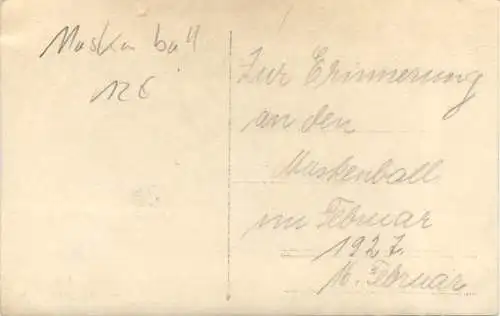 Maskenball
126
Zur Erinnerung
an den
Maskenball
im Februar
1927.
16. Februar